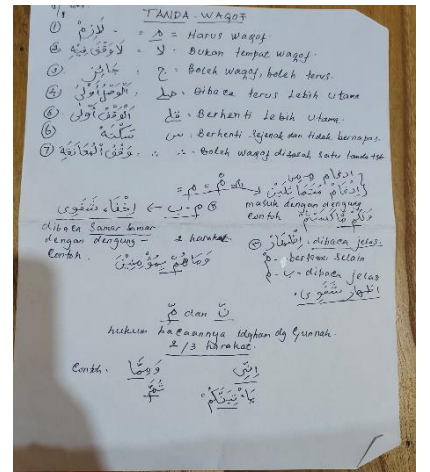 TANDA - WAQOF
① لَازِمْ - = م = Harus Waqof
② لَا وَقْفَ فِيْهِ - لا = Bukan tempat waqof.
③ جَائِزْ - ج = Boleh waqof, boleh terus.
④ اَلْوَصْلُ أَوْلَى صلى = Dibaca terus Lebih Utama
⑤ اَلْوَقْفُ أَوْلَى قلى = Berhenti Lebih Utama.
⑥ سَكْتَةْ س = Berhenti Sejenak dan tidak bernapas.
⑦ وَقْفُ الْمُعَانَقَةِ ∴ ∴ = Boleh waqof disalah satu tanda tsb
إِدْغَامْ
إِدْغَامْ مُتَمَاثِلَيْنِ م = مْ =
masuk dengan dengung
contoh
م - ب -> إِخْفَاءْ شَفَوِى
dibaca Samar Samar
dengan dengung - 2 harakat.
Contoh. وَمَاهُمْ بِمُؤْمِنِيْنَ
إِظْهَارْ, dibaca jelas
مْ - bertemu selain
م - ب - dibaca jelas
اظهار شَفَوِى.
نّ dan مّ
hukum bacaannya Idgham dg Gunnah.
2/3 harakat.
Contoh. وَمِمَّا اِنِّى
ثُمَّ يَأْتِيَنَّكُمْ